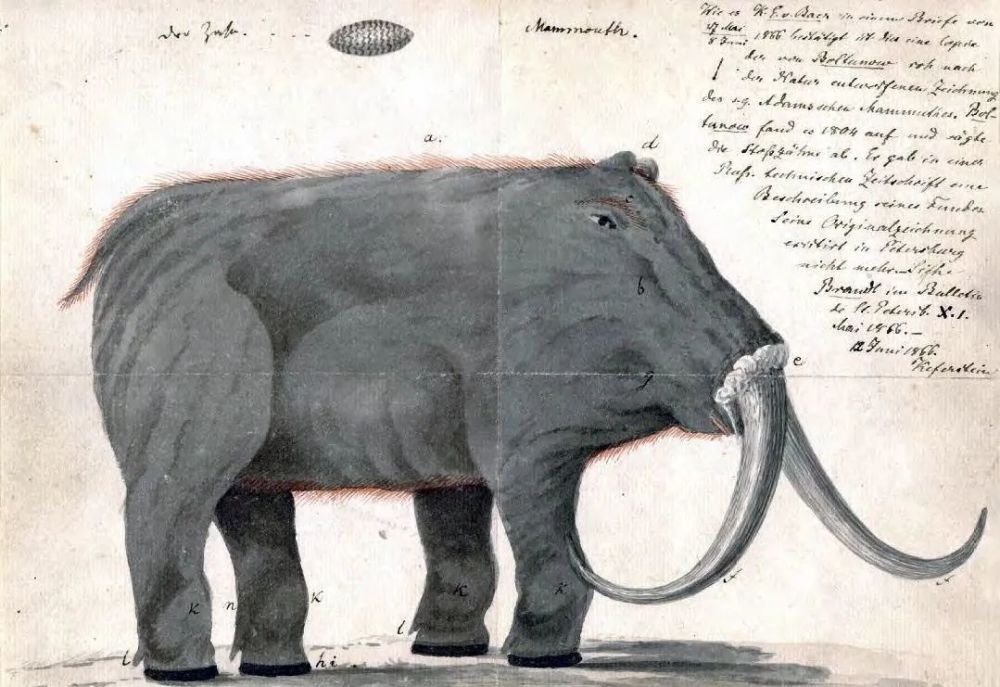 Der Zahn. - . . .
Mammouth.
Wie es K. E. v. Baer in einem Briefe von
27 Mai
8 Juni 1866 bestätigt ist dies eine Copie
der von Boltunow roh nach
der Natur entworfenen Zeichnung
des s.g. Adamsschen Mammuthes. Bol-
tunow fand es 1804 auf und sägte
die Stoßzähne ab. Er gab in einer
Russ. technischen Zeitschrift eine
Beschreibung seines Fundes
Seine Originalzeichnung
existirt in Petersburg
nicht mehr. Siehe
Brandt im Bulletin
de St. Petersb. X. 1.
Mai 1866. —
12 Juni 1866.
Keferstein
a.
d
c
b
g
e
f
f
k
n
k
k
k
l
l
hi.